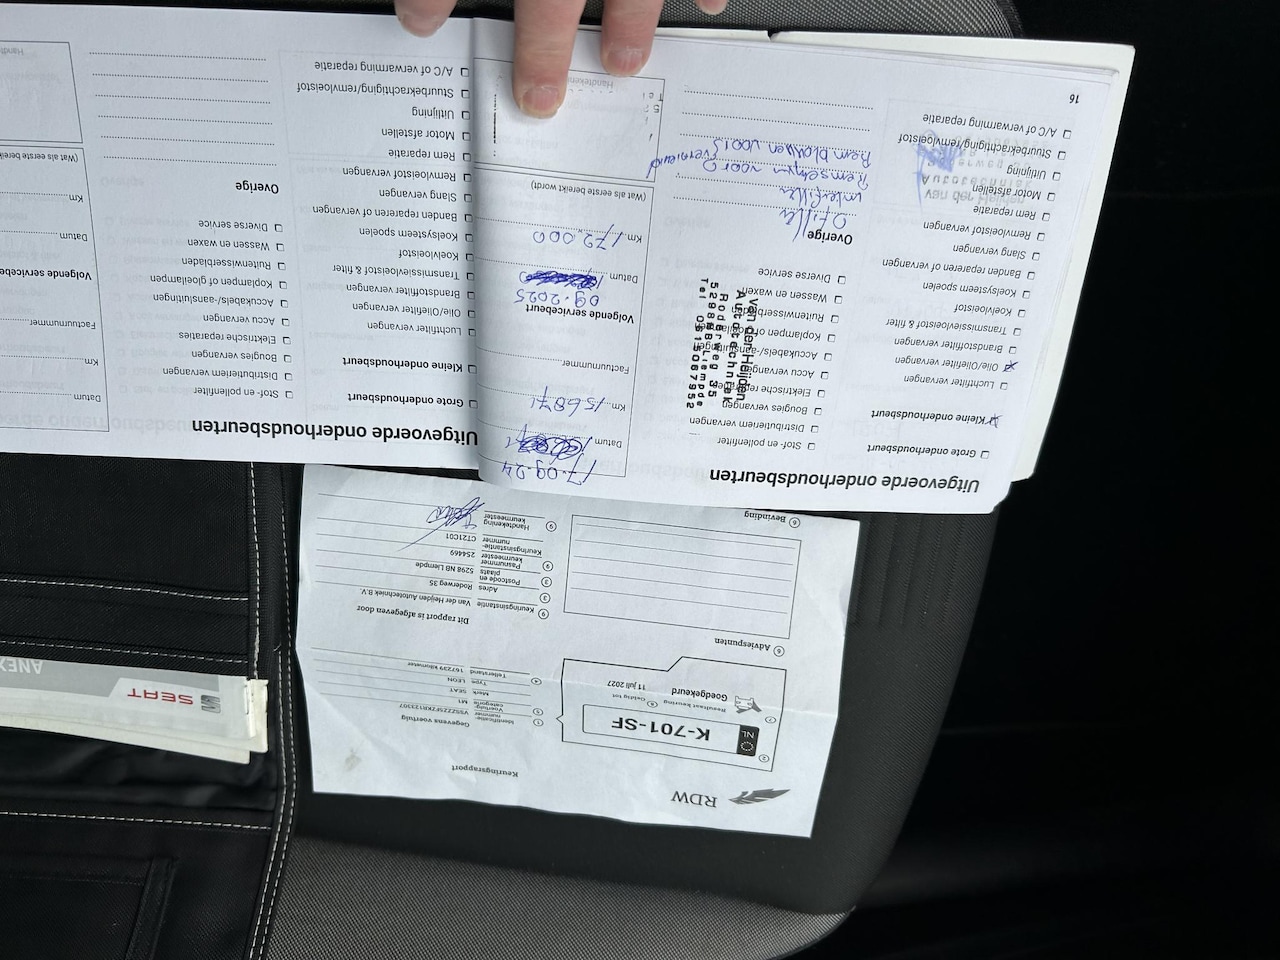 16
Uitgevoerde onderhoudsbeurten
Grote onderhoudsbeurt
Kleine onderhoudsbeurt
Luchtfilter vervangen
Olie/Oliefilter vervangen
Brandstoffilter vervangen
Transmissievloeistof & filter
Koelvloeistof
Koelsysteem spoelen
Banden reparen of vervangen
Slang vervangen
Remvloeistof vervangen
Rem reparatie
Motor afstellen
Uitlijning
Stuurbekrachtiging/remvloeistof
A/C of verwarming reparatie
Stof- en pollenfilter
Distributieriem vervangen
Bougies vervangen
Elektrische reparaties
Accu vervangen
Accukabels/-aansluitingen
Koplampen of gloeilampen
Ruitenwisserbladen
Wassen en waxen
Diverse service
Overige
O filter
interfilter
Remschijven voor
Rem blokken voor
vernieuwd
van der Heijden
Autotechniek
Roderweg 35
5298NB Liempde
Tel 0615087952
17.09.24
Datum
Km 156871
Factuurnummer
Volgende servicebeurt
09.2025
Datum
Km 172.000
(Wat als eerste bereikt wordt)
Uitgevoerde onderhoudsbeurten
Grote onderhoudsbeurt
Kleine onderhoudsbeurt
Luchtfilter vervangen
Olie/Oliefilter vervangen
Brandstoffilter vervangen
Transmissievloeistof & filter
Koelvloeistof
Koelsysteem spoelen
Banden reparen of vervangen
Slang vervangen
Remvloeistof vervangen
Rem reparatie
Motor afstellen
Uitlijning
Stuurbekrachtiging/remvloeistof
A/C of verwarming reparatie
Stof- en pollenfilter
Distributieriem vervangen
Bougies vervangen
Elektrische reparaties
Accu vervangen
Accukabels/-aansluitingen
Koplampen of gloeilampen
Ruitenwisserbladen
Wassen en waxen
Diverse service
Overige
Datum
Km
Factuurnummer
Datum
Km
RDW
Keuringsrapport
2
NL
K-701-SF
7 Resultaat keuring
Goedgekeurd
8 Geldig tot
11 juli 2027
1 Identificatienummer
Gegevens voertuig
5 Voertuigcategorie M1
Merk SEAT
Type LEON
4 Tellerstand 167239 kilometer
6 Adviespunten
6 Bevinding
Dit rapport is afgegeven door
9 Keuringsinstantie Van der Heijden Autotechniek B.V.
3 Adres Roderweg 35
3 Postcode en plaats 5298 NB Liempde
9 Pasnummer keurmeester 254469
Keuringsinstantienummer CT21C01
9 Handtekening keurmeester
SEAT
ANEX